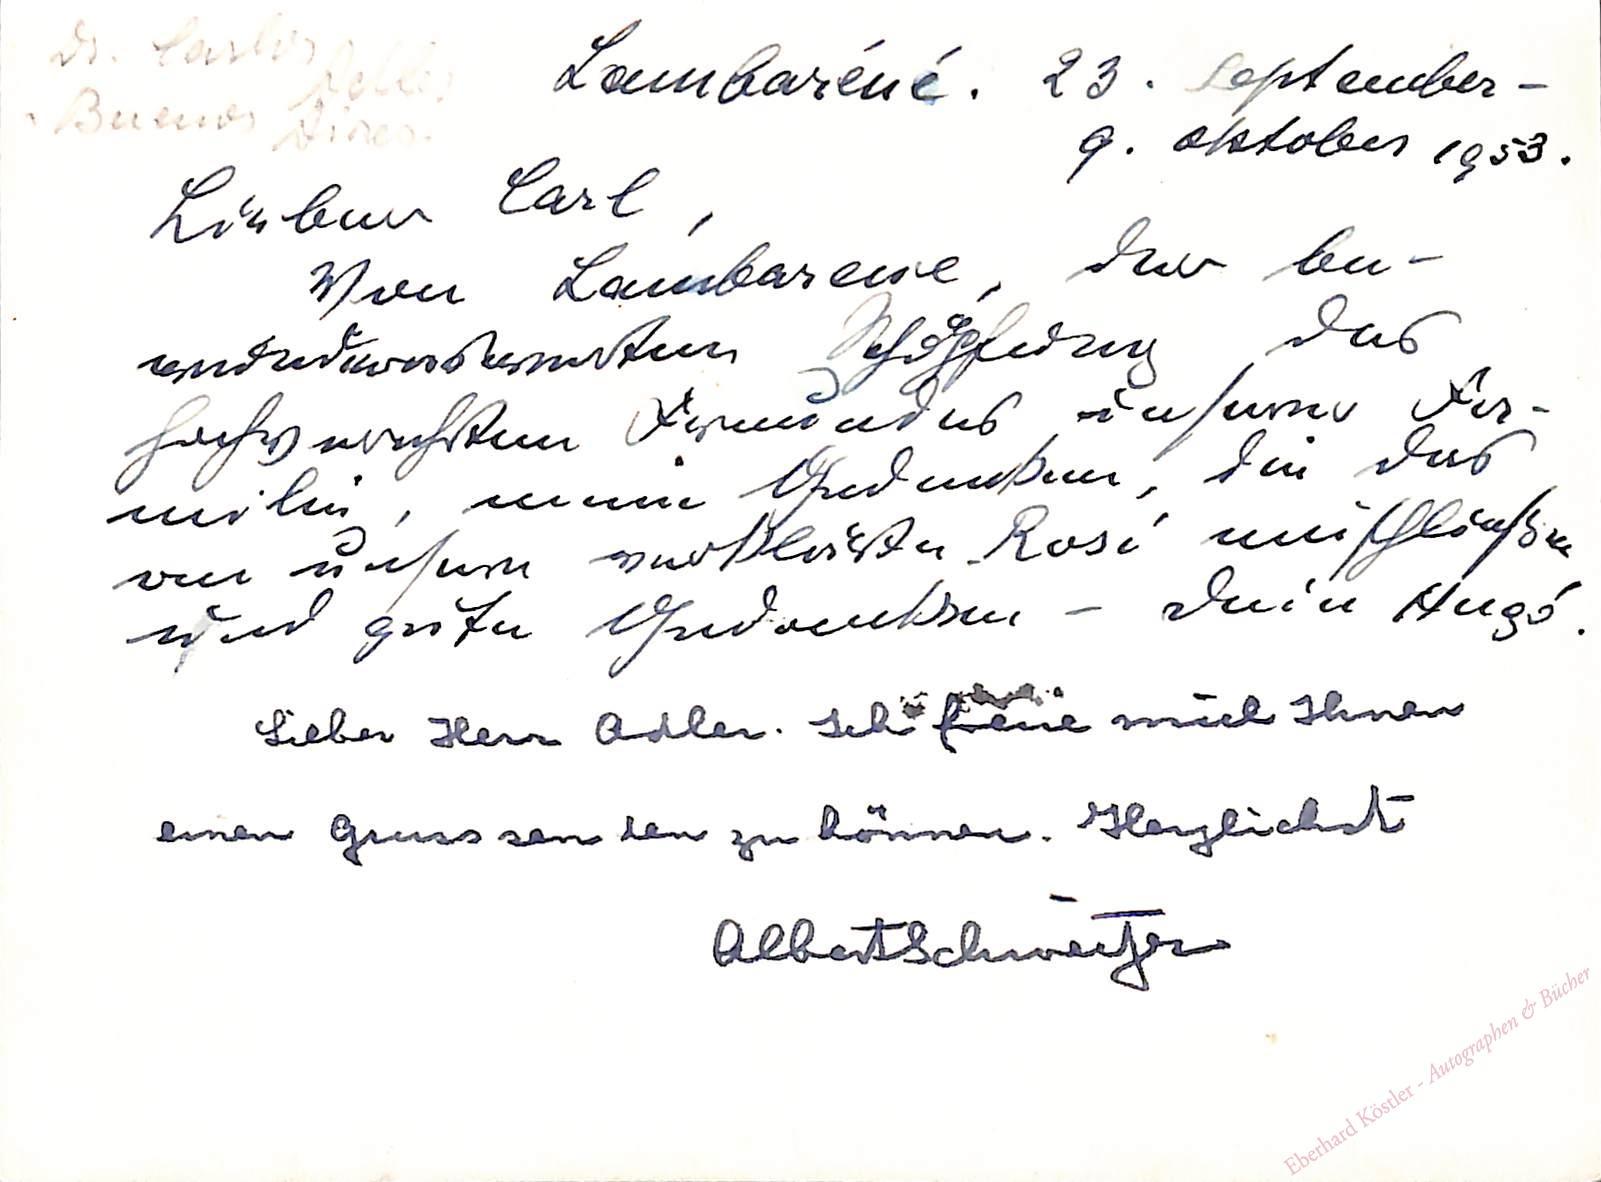 Dr. Carlos Adler
Buenos Aires.
Lambaréné. 23. September -
9. Oktober 1953.
Lieber Carl,
Von Lambarene, der be-
wundernswertesten Schöpfung des
hochverehrten Freundes unserer Fa-
milie, mein Gedenken, die das
an unsere verklärte Rosi
und guten Gedanken - Dein Hugo.
Lieber Herr Adler. Ich freue mich Ihnen
einen Gruss senden zu können. Herzlichst
Albert Schweitzer
Eberhard Köstler - Autographen & Bücher